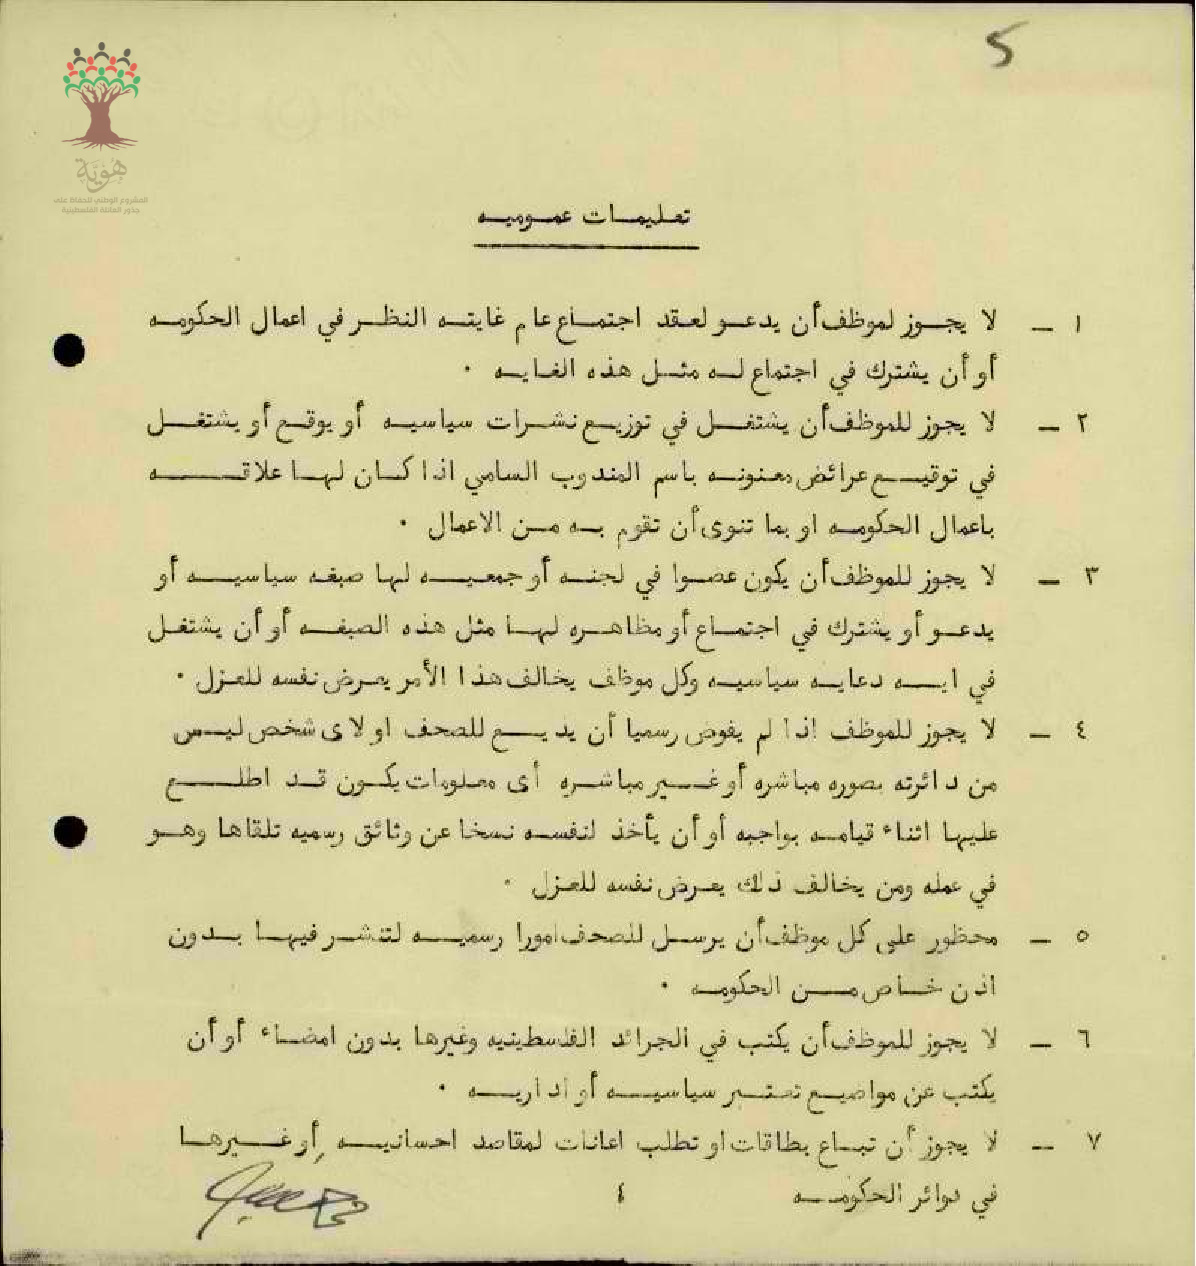 5
هُوِيَّة
المشروع الوطني للحفاظ على
جذور العائلة الفلسطينية
تعليمات عموميه
١ - لا يجوز لموظف أن يدعو لعقد اجتماع عام غايته النظر في اعمال الحكومه
أو أن يشترك في اجتماع له مثل هذه الغايه ٠
٢ - لا يجوز للموظف أن يشتغل في توزيع نشرات سياسيه أو يوقع أو يشتغل
في توقيع عرائض معنونه باسم المندوب السامي اذا كان لها علاقه
باعمال الحكومه او بما تنوى أن تقوم به من الاعمال ٠
٣ - لا يجوز للموظف أن يكون عضوا في لجنه أو جمعيه لها صبغه سياسيه أو
يدعو أو يشترك في اجتماع أو مظاهره لها مثل هذه الصبغه أو أن يشتغل
في ايه دعايه سياسيه وكل موظف يخالف هذا الأمر يعرض نفسه للعزل ٠
٤ - لا يجوز للموظف اذا لم يفوض رسميا أن يذيع للصحف او لاى شخص ليس
من دائرته بصوره مباشره أو غير مباشره أى معلومات يكون قد اطلع
عليها اثناء قيامه بواجبه أو أن يأخذ لنفسه نسخا عن وثائق رسميه تلقاها وهو
في عمله ومن يخالف ذلك يعرض نفسه للعزل ٠
٥ - محظور على كل موظف أن يرسل للصحف امورا رسميه لتنشر فيها بدون
اذن خاص من الحكومه ٠
٦ - لا يجوز للموظف أن يكتب في الجرائد الفلسطينيه وغيرها بدون امضاء أو أن
يكتب عن مواضيع تعتبر سياسيه أو اداريه ٠
٧ - لا يجوز أن تباع بطاقات او تطلب اعانات لمقاصد احسانيه أو غيرها
في دوائر الحكومه ٤